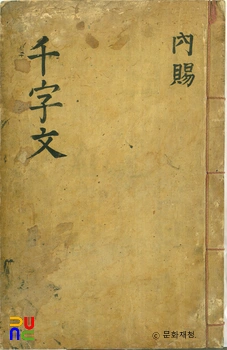 千字文
內賜
ⓒ 문화재청